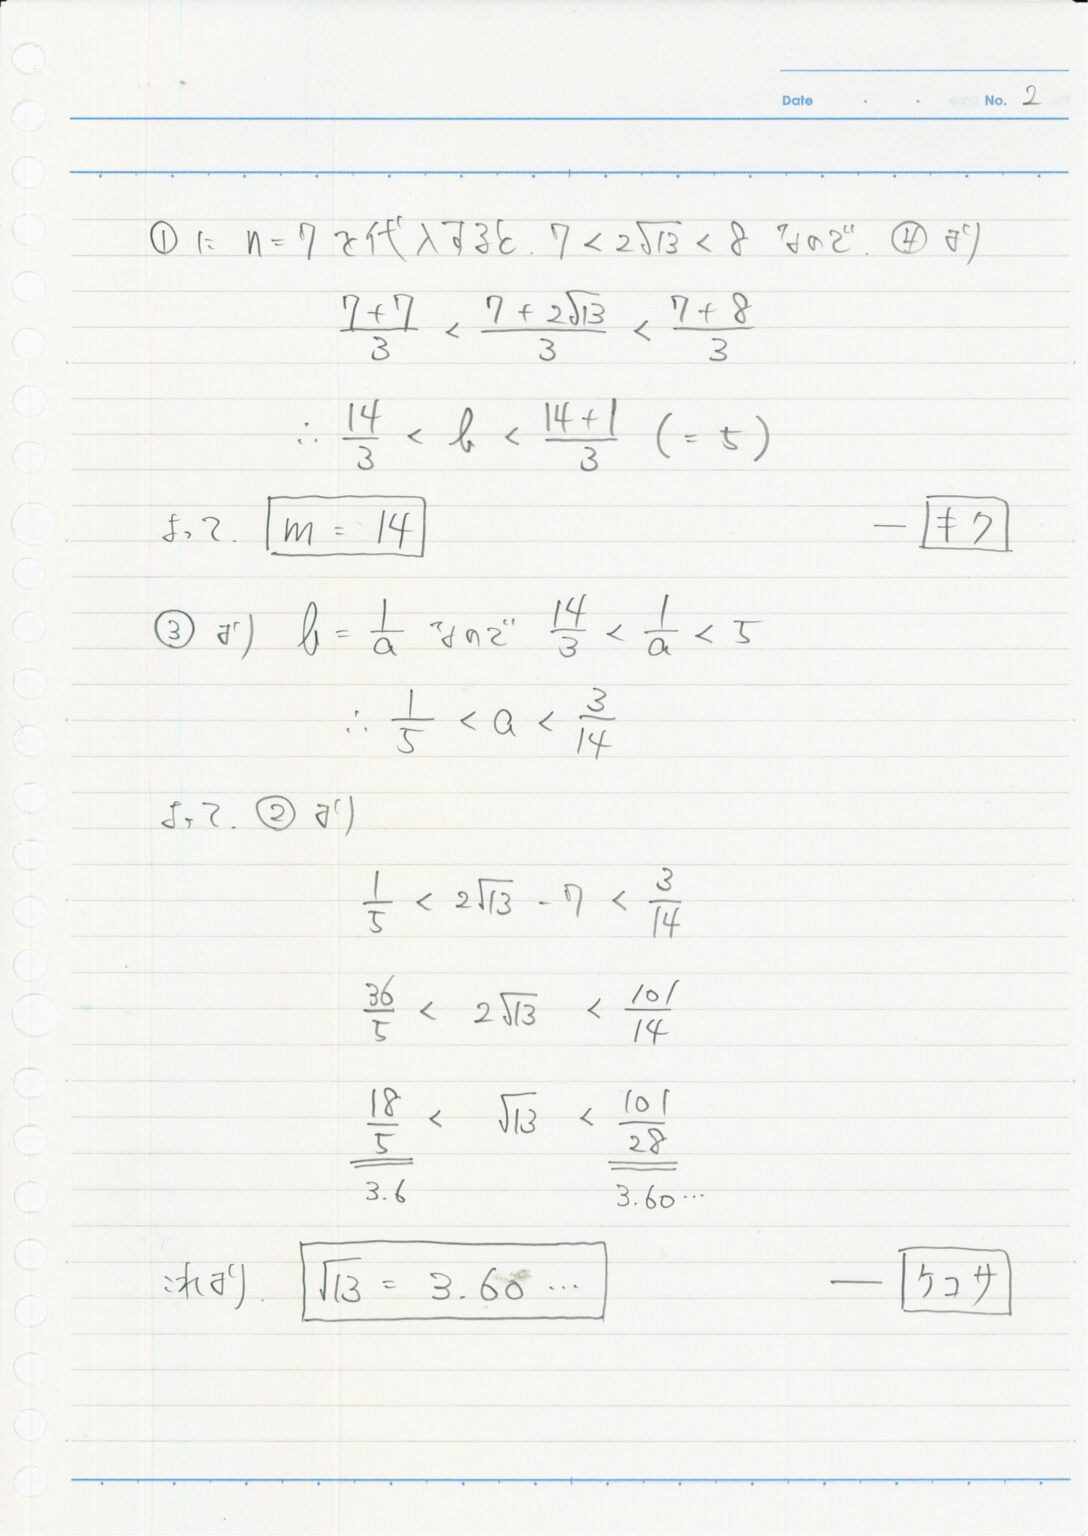 Date ・ ・ No. 2
①に n=7を代入すると、7 < 2√13 < 8 なので、④より
(7+7)/3 < (7+2√13)/3 < (7+8)/3
∴ 14/3 < b < (14+1)/3 (=5)
よって、m = 14 ― キク
③より b = 1/a なので 14/3 < 1/a < 5
∴ 1/5 < a < 3/14
よって、②より
1/5 < 2√13 - 7 < 3/14
36/5 < 2√13 < 101/14
18/5 < √13 < 101/28
3.6 3.60…
これより、√13 = 3.60… ― ケコサ